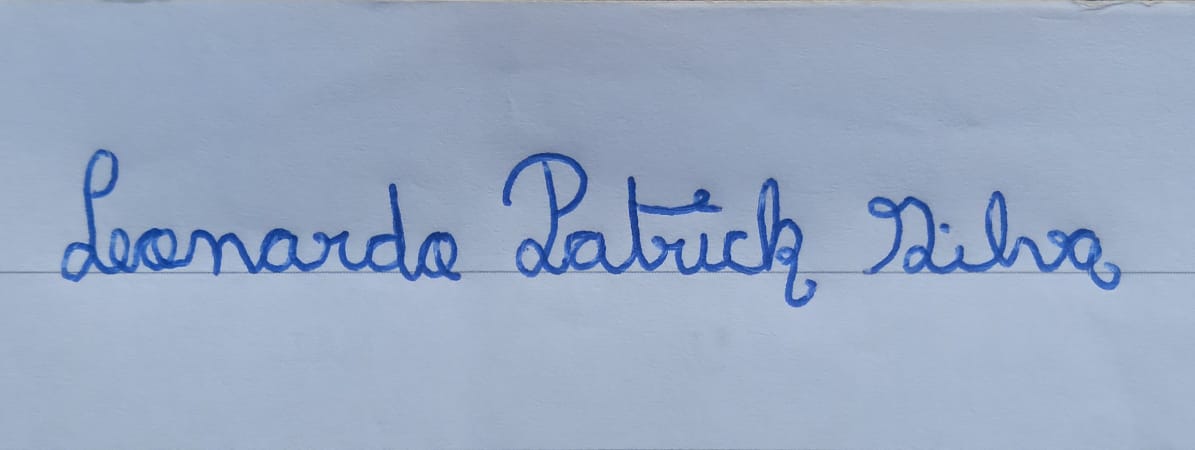 Leonardo Patrick Silva